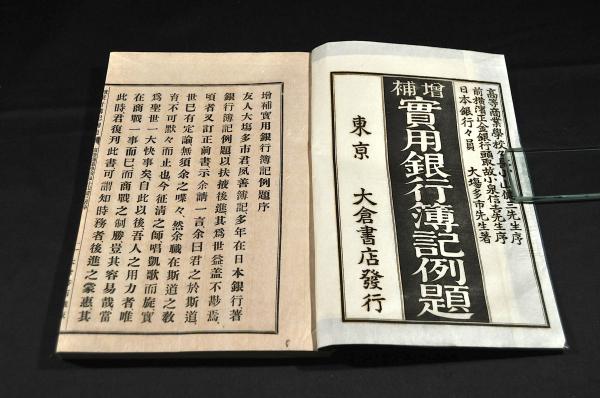 高等商業學校 三先生序
前橫濱正金銀行頭取故小泉信吉先生序
日本銀行々員 大塲多市先生著
增補
實用銀行簿記例題
東京 大倉書店發行
增補實用銀行簿記例題序
友人大塲多市君夙善簿記多年在日本銀行著
銀行簿記例題以扶掖後進其爲世益蓋不尠焉
頃者又訂正前書示余請一言余曰君之於斯道
世已有定論無須余之喋々然余職在斯道之敎
育不可默々而止也今征淸之師唱凱歌而旋實
爲聖世一大快事矣自此以後吾人之用力者唯
在商戰一事而已而商戰之制勝豈其容易哉當
此時君復刊此書可謂知時務者後進之蒙惠其